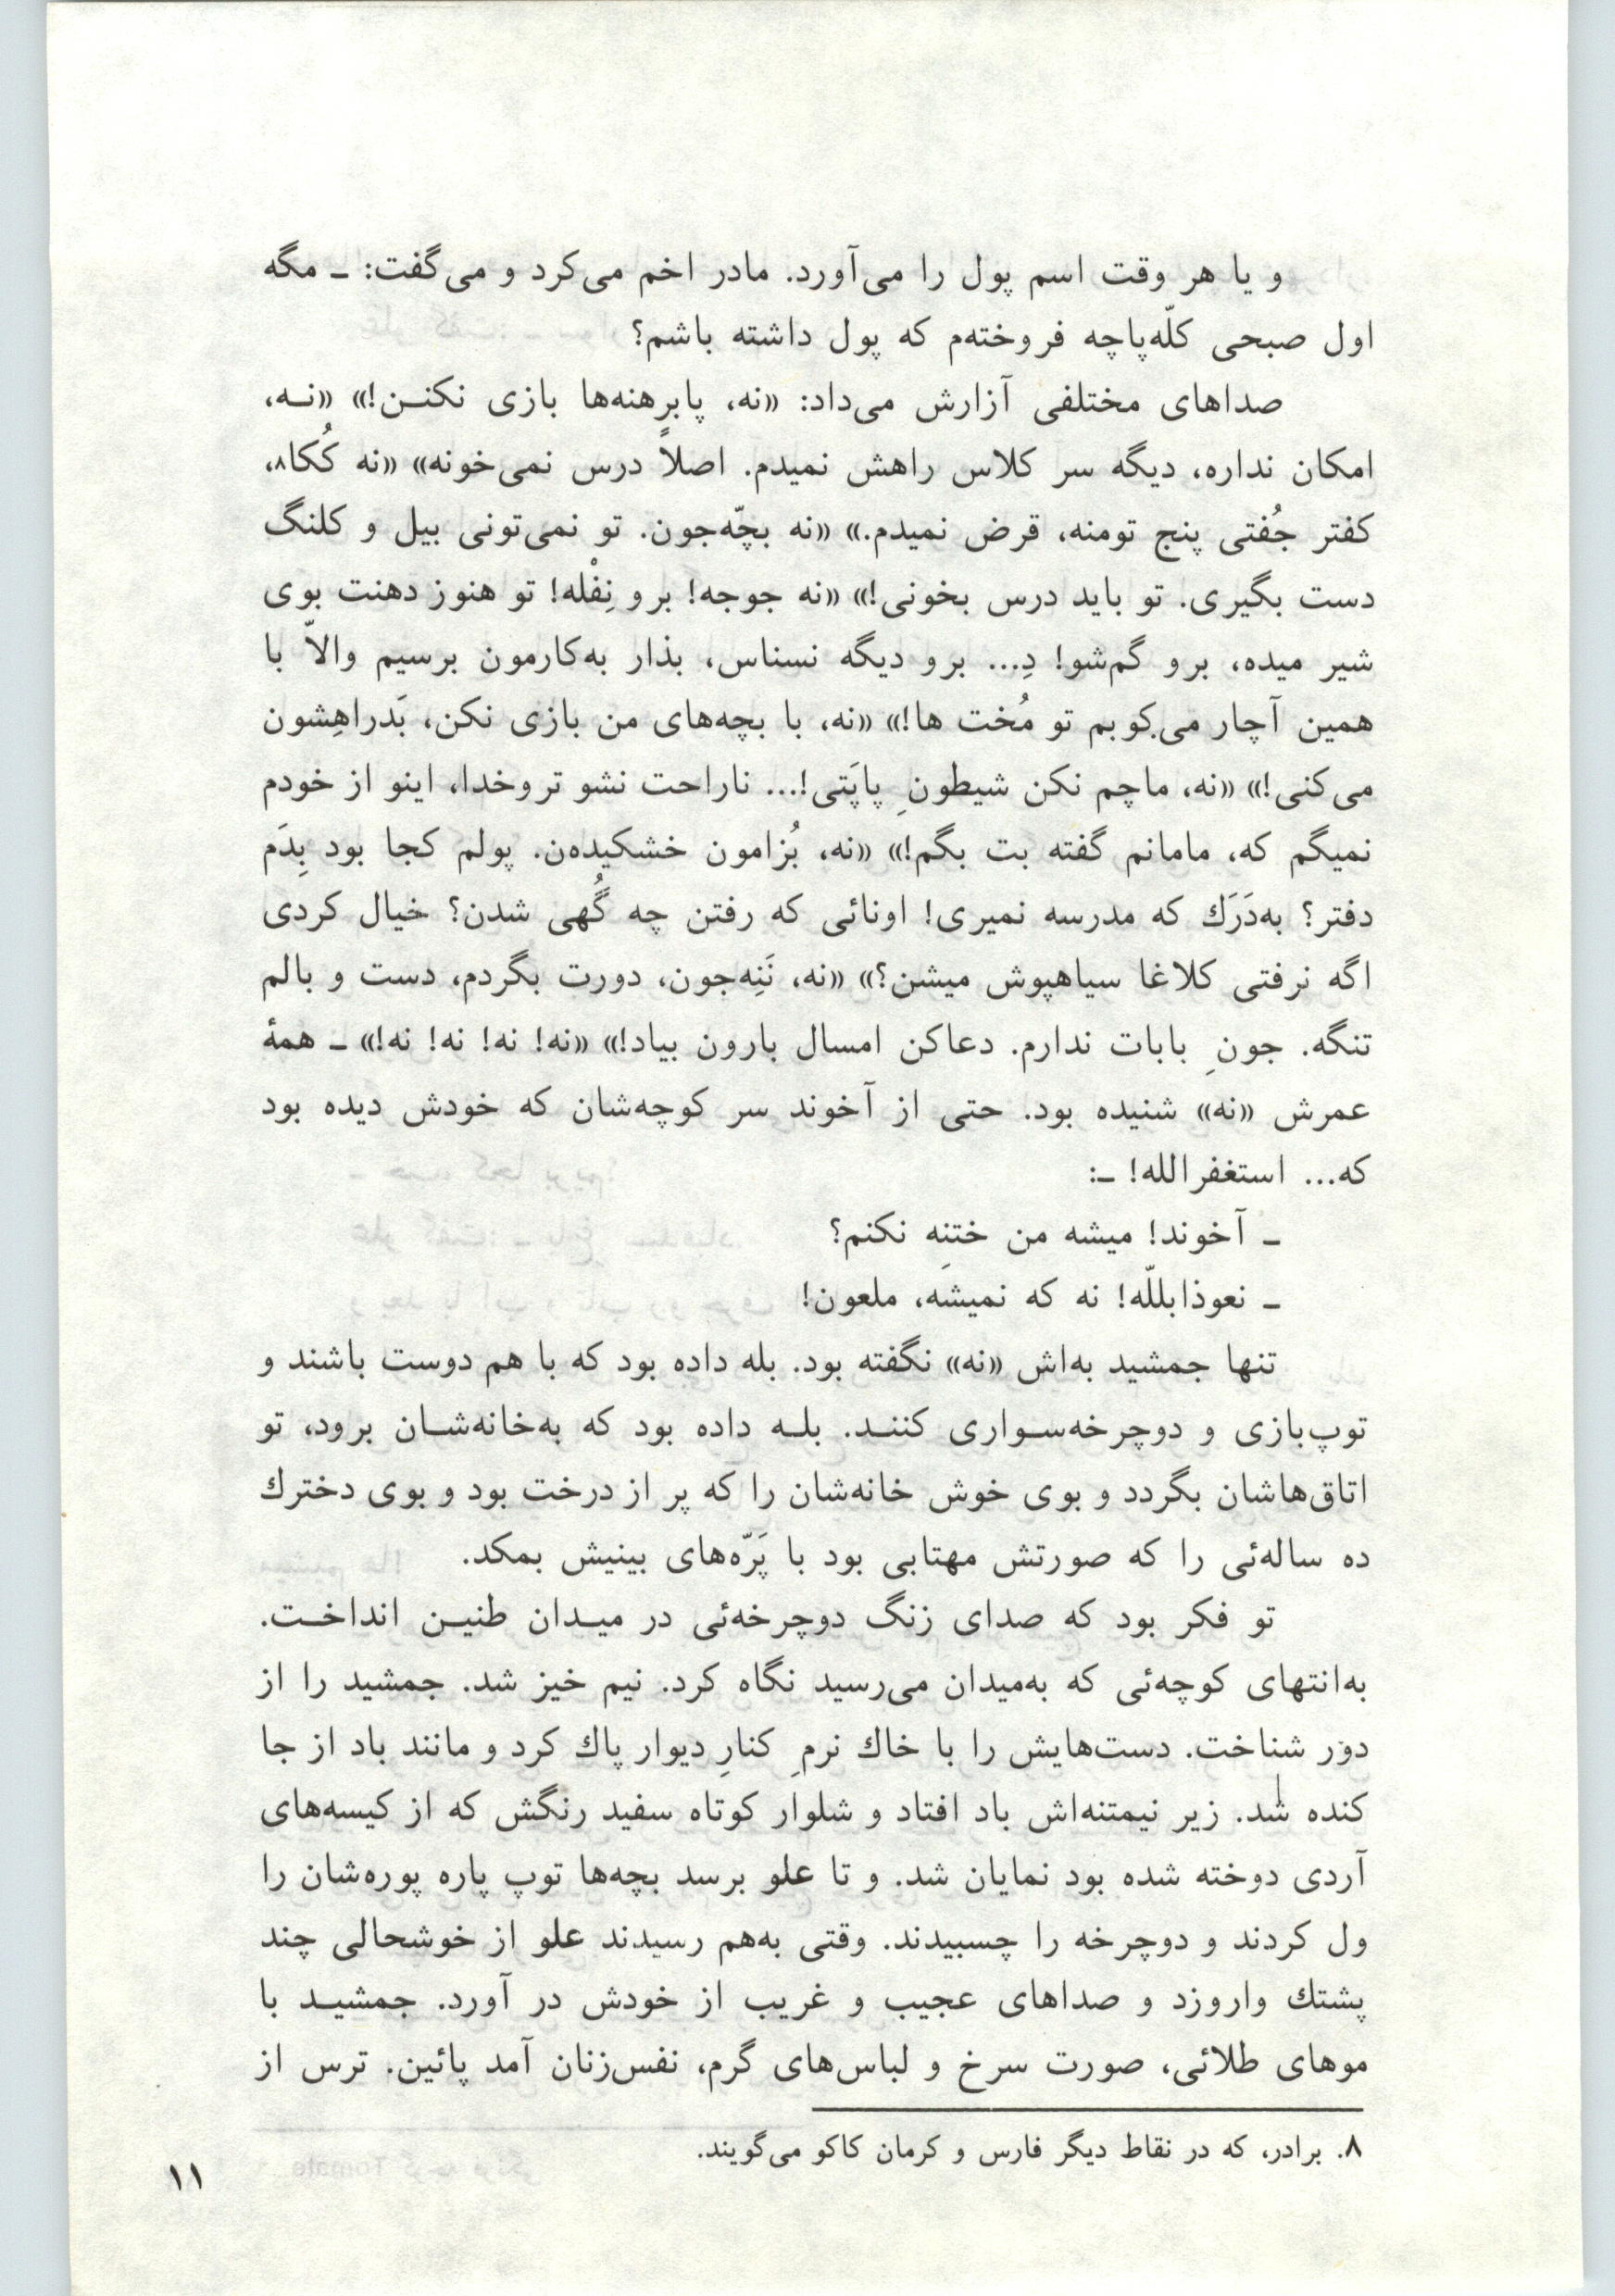 و یا هر وقت اسم پول را می‌آورد. مادر اخم می‌کرد و می‌گفت: ـ مگه
اول صبحی کلّه‌پاچه فروخته‌م که پول داشته باشم؟
صداهای مختلفی آزارش می‌داد: «نه، پابرهنه‌ها بازی نکنـن!» «نـه،
امکان نداره، دیگه سر کلاس راهش نمیدم. اصلاً درس نمی‌خونه» «نه کُکا۸،
کفتر جُفتی پنج تومنه، قرض نمیدم.» «نه بچّه‌جون. تو نمی‌تونی بیل و کلنگ
دست بگیری. تو باید درس بخونی!» «نه جوجه! برو نِفْله! تو هنوز دهنت بوی
شیر میده، برو گم‌شو! دِ... برو دیگه نسناس، بذار به‌کارمون برسیم والاّ با
همین آچار می‌کوبم تو مُخت ها!» «نه، با بچه‌های من بازی نکن، بَدراهِشون
می‌کنی!» «نه، ماچم نکن شیطونِ پاپَتی!... ناراحت نشو تروخدا، اینو از خودم
نمیگم که، مامانم گفته بت بگم!» «نه، بُزامون خشکیده‌ن. پولم کجا بود بِدَم
دفتر؟ به‌دَرَك که مدرسه نمیری! اونائی که رفتن چه گُهی شدن؟ خیال کردی
اگه نرفتی کلاغا سیاهپوش میشن؟» «نه، نَنِه‌جون، دورت بگردم، دست و بالم
تنگه. جونِ بابات ندارم. دعاکن امسال بارون بیاد!» «نه! نه! نه! نه!» ـ همۀ
عمرش «نه» شنیده بود. حتی از آخوند سر کوچه‌شان که خودش دیده بود
که... استغفرالله! ـ:
ـ آخوند! میشه من ختنِه نکنم؟
ـ نعوذابللّه! نه که نمیشه، ملعون!
تنها جمشید به‌اش «نه» نگفته بود. بله داده بود که با هم دوست باشند و
توپ‌بازی و دوچرخه‌سـواری کننـد. بلـه داده بود که به‌خانه‌شـان برود، تو
اتاق‌هاشان بگردد و بوی خوش خانه‌شان را که پر از درخت بود و بوی دخترك
ده ساله‌ئی را که صورتش مهتابی بود با پَرّه‌های بینیش بمکد.
تو فکر بود که صدای زنگ دوچرخه‌ئی در میـدان طنیـن انداخـت.
به‌انتهای کوچه‌ئی که به‌میدان می‌رسید نگاه کرد. نیم خیز شد. جمشید را از
دور شناخت. دست‌هایش را با خاك نرمِ کنارِ دیوار پاك کرد و مانند باد از جا
کنده شد. زیر نیمتنه‌اش باد افتاد و شلوار کوتاه سفید رنگش که از کیسه‌های
آردی دوخته شده بود نمایان شد. و تا علو برسد بچه‌ها توپ پاره پوره‌شان را
ول کردند و دوچرخه را چسبیدند. وقتی به‌هم رسیدند علو از خوشحالی چند
پشتك واروزد و صداهای عجیب و غریب از خودش در آورد. جمشیـد با
موهای طلائی، صورت سرخ و لباس‌های گرم، نفس‌زنان آمد پائین. ترس از
۸. برادر، که در نقاط دیگر فارس و کرمان کاکو می‌گویند.
۱۱